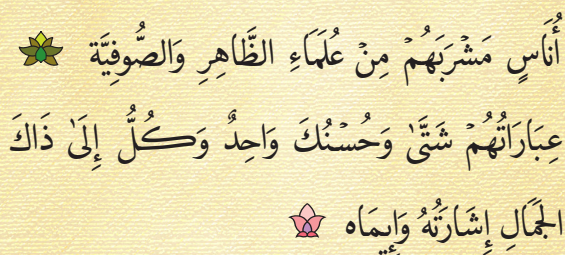 أُنَاسٍ مَشْرَبَهُمْ مِنْ عُلَمَاءِ الظَّاهِرِ وَالصُّوفِيَّة
عِبَارَاتُهُمْ شَتَّىٰ وَحُسْنُكَ وَاحِدٌ وَكُلٌّ إِلَىٰ ذَاكَ
الْجَمَالِ إِشَارَتُهُ وَإِيمَاه